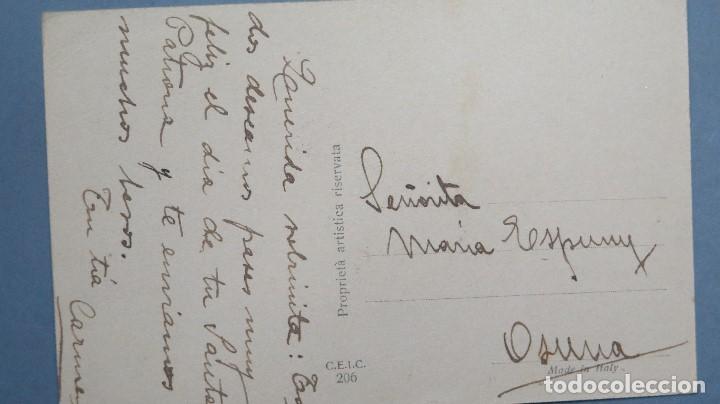 Querida sobrinita: To
dos deseamos pases muy
feliz el día de tu Santa
Patrona y te enviamos
muchos besos.
Tu tía Carmen
Proprietà artistica riservata
C.E.I.C.
206
Señorita
María Espuny
Osuna
Made in Italy
todocoleccion.net